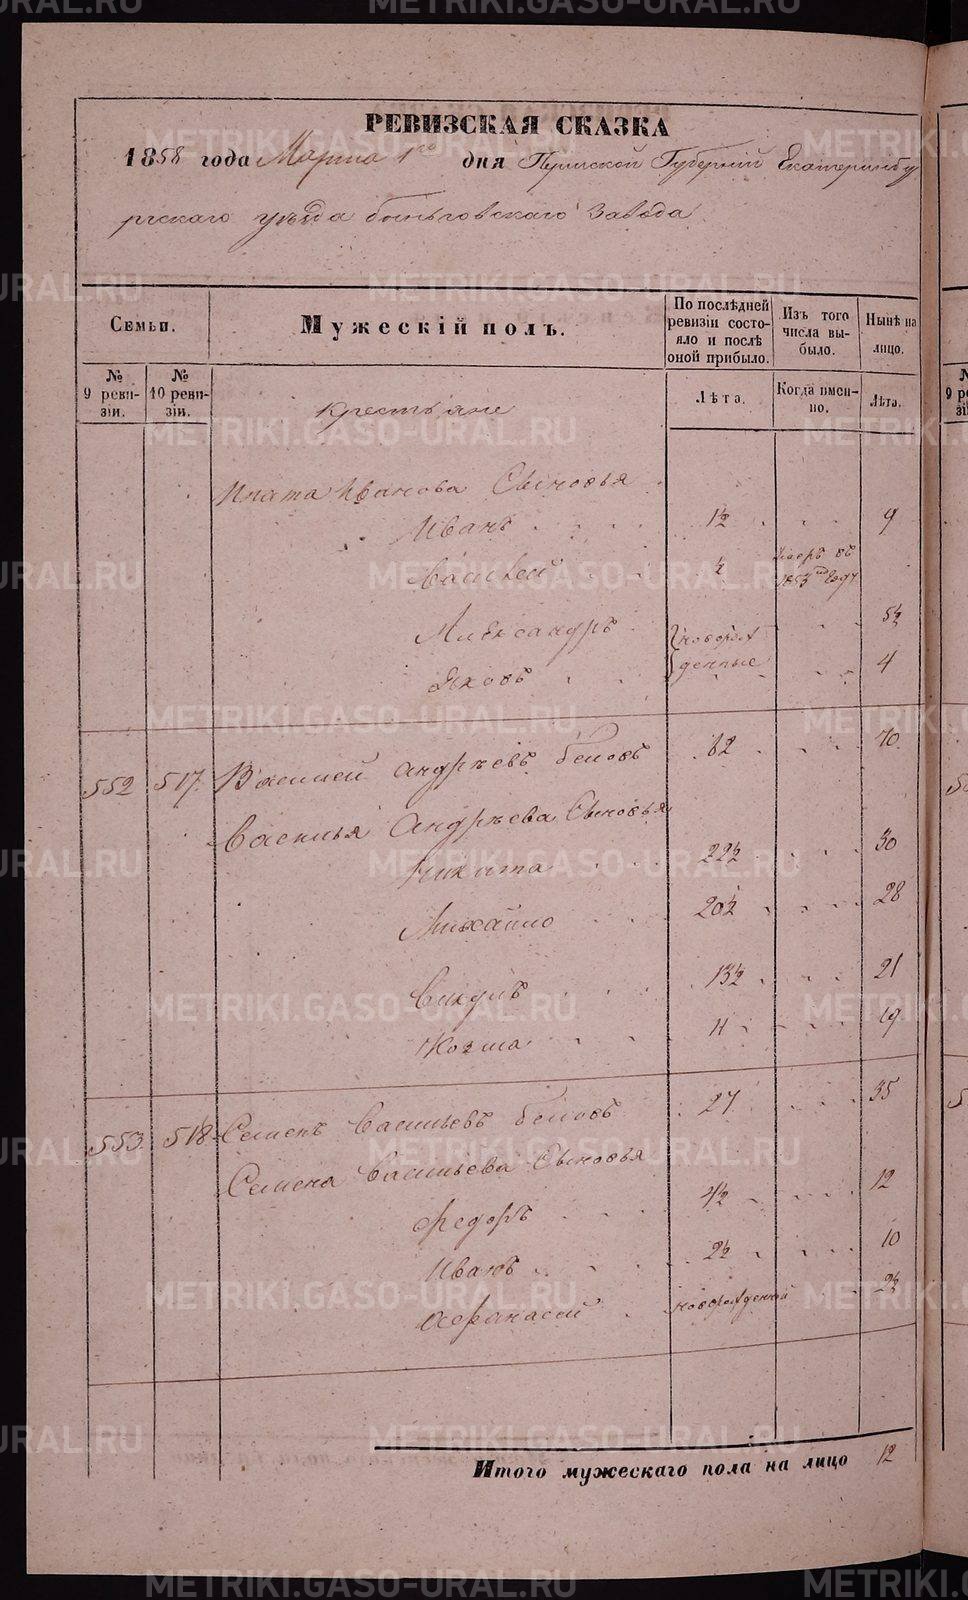 РЕВИЗСКАЯ СКАЗКА
1858 года Марта 1го дня Пермской Губернiи Екатеринбу
ргскаго уѣзда быньговскаго завода
Семьи.
Мужескiй полъ.
По послѣдней ревизiи состояло и послѣ оной прибыло.
Изъ того числа выбыло.
Нынѣ на лицо.
№ 9 ревизiи.
№ 10 ревизiи.
Лѣта.
Когда именно.
Лѣта.
крестьяне
Ипата Иванова Сыновья
Иванъ 1½ 9
Василей ½ умеръ въ 1853мъ году
Александръ новорож 5½
Яковъ денные 4
552 517 Василей андрѣевъ беловъ 62 70
Василья Андрѣева Сыновья
Никита 22½ 30
Михайло 20½ 28
Викулъ 13½ 21
Козма 11 19
553 518 Семенъ Васильевъ беловъ 27 35
Семена Васильева Сыновья
Федоръ 4½ 12
Иванъ 2½ 10
Афанасей новорожденной 2½
Итого мужескаго пола на лицо 12
METRIKI.GASO-URAL.RU